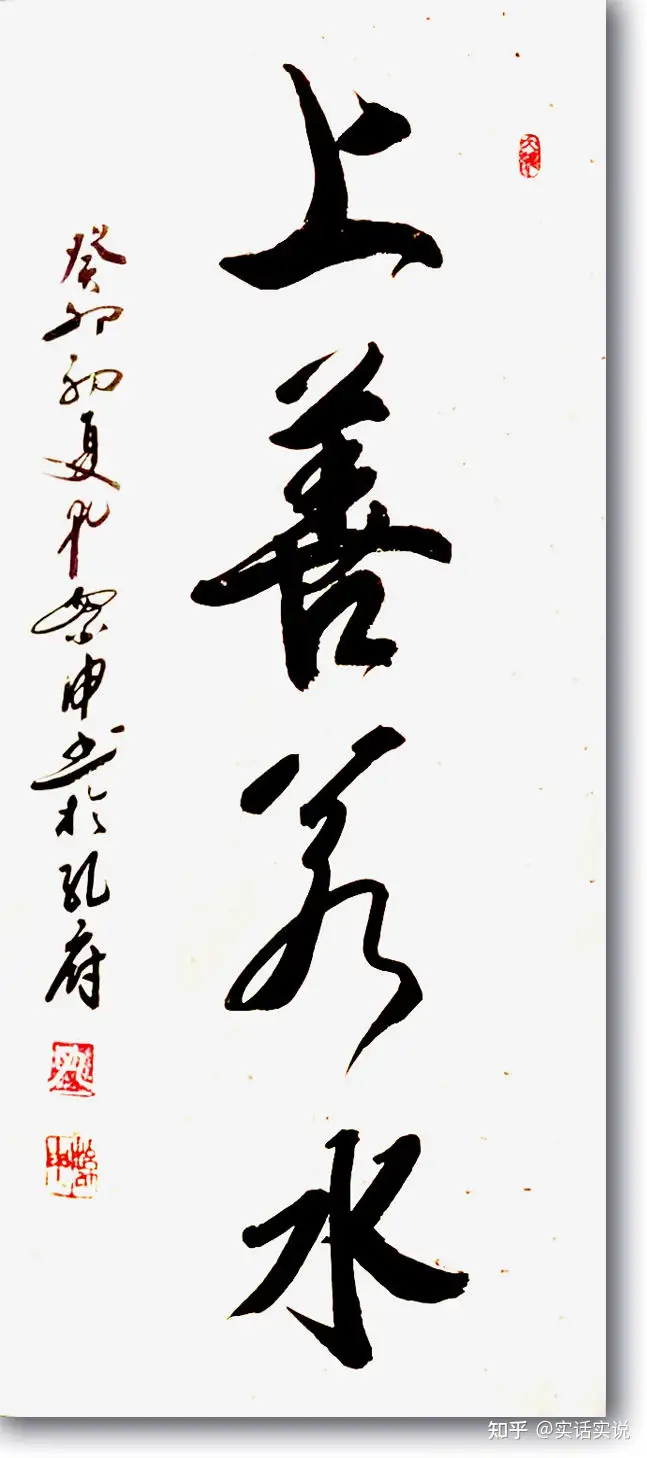 上善若水
癸卯初夏孔祭申书於孔府
知乎 @实话实说